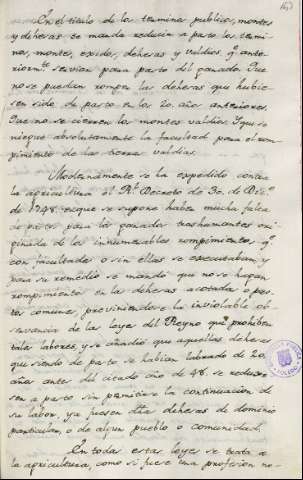 En el titulo de los terminos publicos, montes
y dehesas se manda reducir a pasto los termi-
nos, montes, exidos, dehesas y valdios, qe ante-
riormte servian para pasto del ganado. Que
no se puedan romper las dehesas que hubie-
sen sido de pasto en los 20. años anteriores.
Que no se cierren los montes valdios. Y que se
niegue absolutamente la facultad para el rom-
pimiento de las tierras valdias.
Modernamente se ha expedido contra
la agricultura el Rl. Decreto de 30. de Dizre.
de 1748. en que se supone haber mucha falta
de pastos para los ganados trashumantes ori-
ginada de los innumerables rompimientos, qe
con facultades o sin ellas se executaban, y
para su remedio se mandó que no se hagan
rompimientos en las dehesas acotadas o pas-
tos comunes, previniendose la inviolable ob-
servancia de las leyes del Reyno qe prohiben
tales labores, y se añadió que aquellas dehesas
que siendo de pasto se habian labrado de 20.
años antes del citado año de 48. se reduxe-
sen a pasto sin permitirse la continuacion de
su labor, ya fuesen dhas dehesas de dominio
particular, o de algun pueblo o comunidad.
En todas estas leyes se trata a
la agricultura, como si fuese una profesion no-